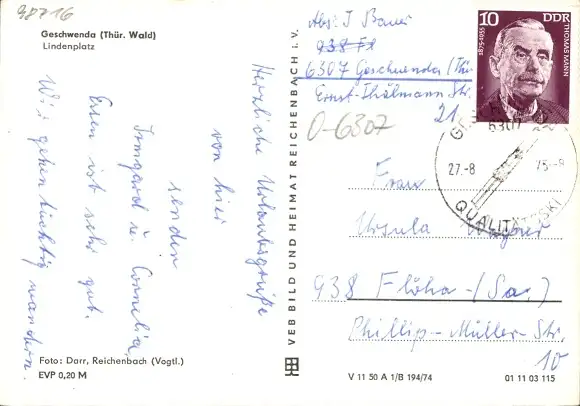 98716
Geschwenda (Thür. Wald)
Lindenplatz
Herzliche Urlaubsgrüße
von hier
senden
Irmgard u. Cornelia,
Essen ist sehr gut.
Wir gehen tüchtig wandern.
Foto: Darr, Reichenbach (Vogtl.)
EVP 0,20 M
VEB BILD UND HEIMAT REICHENBACH i. V.
Abs: I Bauer
938 Fl
6307 Geschwenda (Thür
Ernst-Thälmann Str.
21
O-6307
10 DDR
1875-1955 THOMAS MANN
6307
27.-8 75.-8
QUALITÄTSSKI
Frau
Ursula Wagner
938 Flöha-(Sa.)
Phillip-Müller-Str.
10
V 11 50 A 1/B 194/74 01 11 03 115